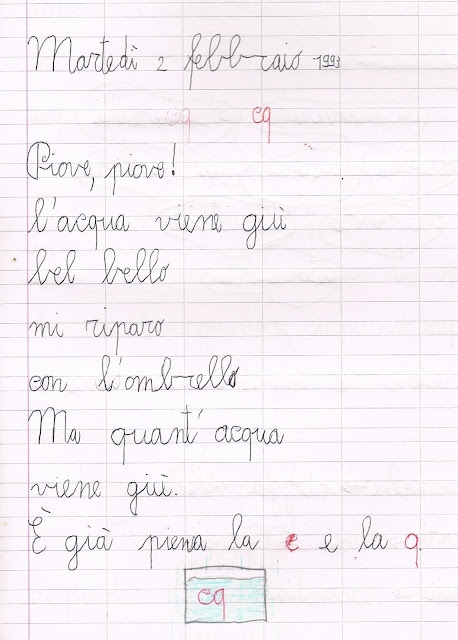 Martedì 2 febbraio 1993
cq cq
Piove, piove!
l'acqua viene giù
bel bello
mi riparo
con l'ombrello
Ma quant'acqua
viene giù.
È già piena la c e la q.
cq